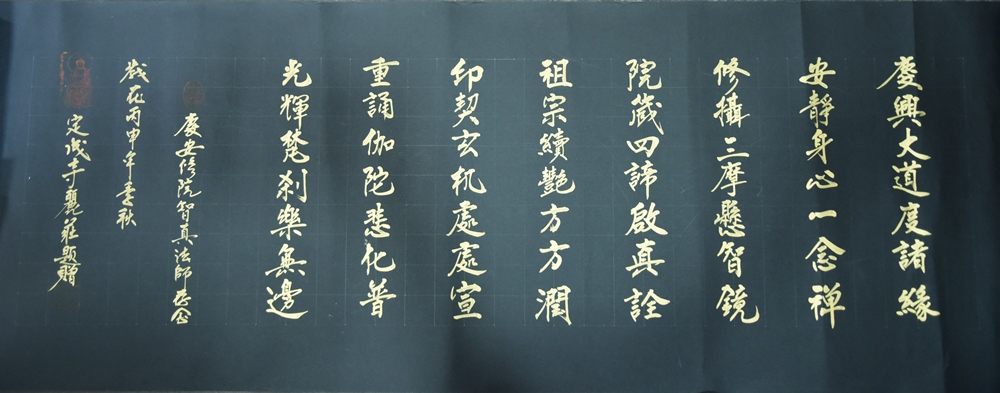 慶興大道度諸緣
安靜身心一念禅
修攝三摩懸智鏡
院箴四諦啟真詮
祖宗續艷方方潤
印契玄机處處宣
重誦伽陀悲化普
光輝梵刹樂無邊
慶安修院智真法師存念
歲在丙申年季秋
定成寺麗莊題贈